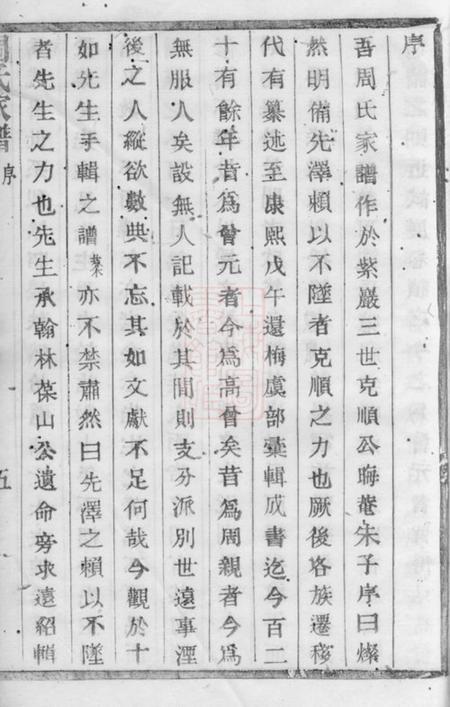 序
吾周氏家譜作於紫巖三世克順公晦菴朱子序曰燦
然明備先澤賴以不墜者克順之力也厥後各族遷移
代有纂述至康熙戊午還梅虞部彙輯成書迄今百二
十有餘年昔爲曾元者今爲高曾矣昔爲周親者今爲
無服人矣設無人記載於其間則支分派別世遠事湮
後之人縱欲數典不忘其如文獻不足何哉今觀於十
如先生手輯之譜藁亦不禁肅然曰先澤之賴以不墜
者先生之力也先生承翰林葆山公遺命旁求遠紹輯
周氏家譜 序 五